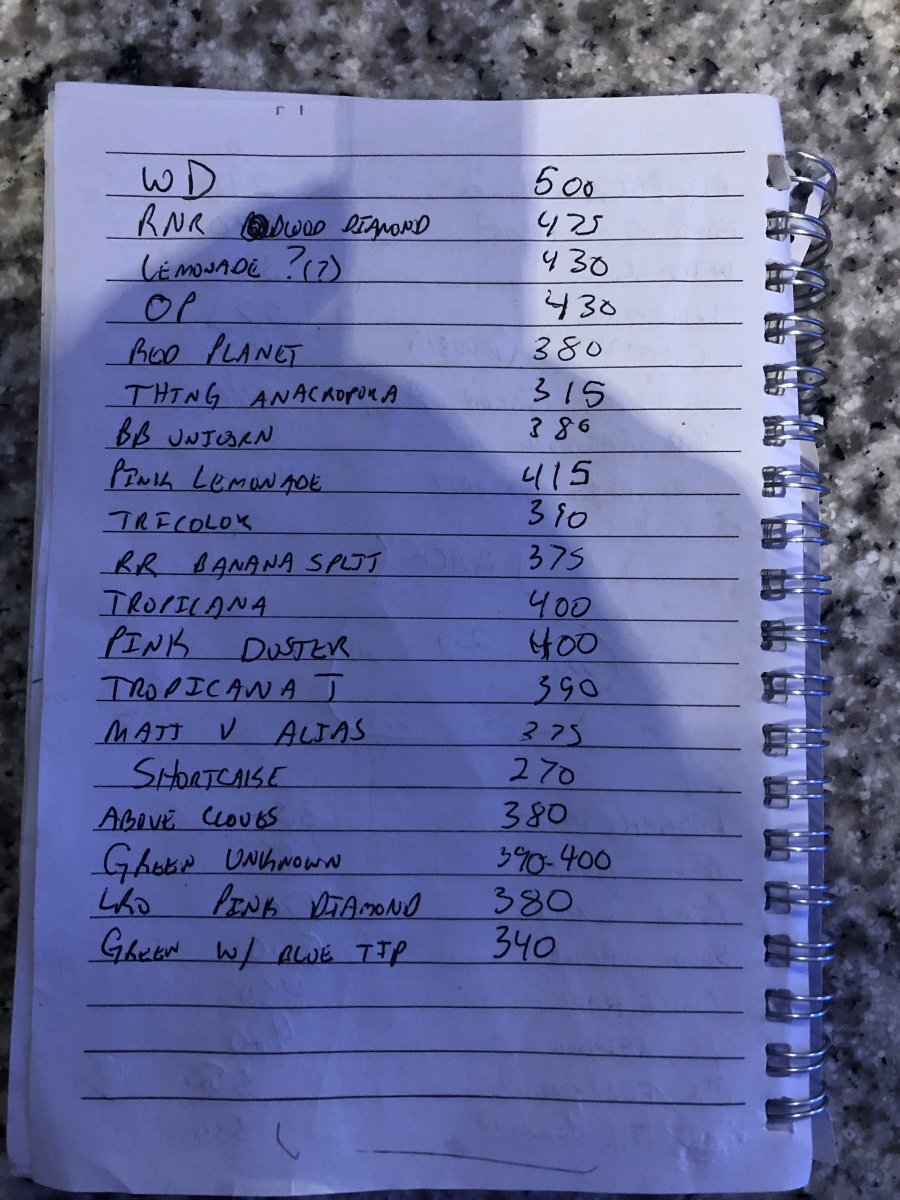 WD 500
RNR DIAMOND 475
LEMONADE ?(7) 430
OP 430
RED PLANET 380
THING ANACROPORA 315
BB UNICORN 380
PINK LEMONADE 415
TRICOLOR 390
RR BANANA SPLIT 375
TROPICANA 400
PINK DUSTER 400
TROPICANA T 390
MATT V ALIAS 375
SHORTCAKE 270
ABOVE CLOUDS 380
GREEN UNKNOWN 390-400
PINK DIAMOND 380
GREEN W/ BLUE TIP 340